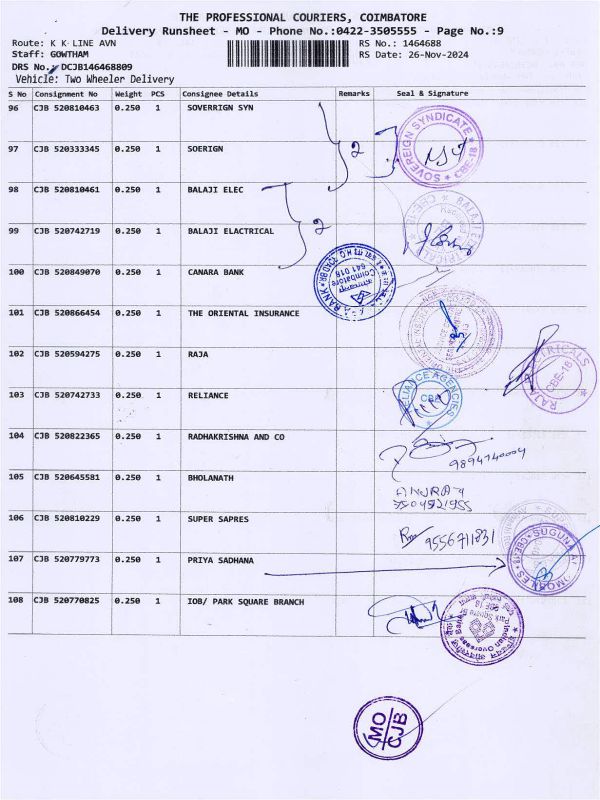 THE PROFESSIONAL COURIERS, COIMBATORE
Delivery Runsheet - MO - Phone No.:0422-3505555 - Page No.:9
Route: K K LINE AVN
RS No.: 1464688
Staff: GOWTHAM
RS Date: 26-Nov-2024
DRS No.: DCJB146468809
Vehicle: Two Wheeler Delivery
S No Consignment No Weight PCS Consignee Details Remarks Seal & Signature
96 CJB 520810463 0.250 1 SOVERRIGN SYN
SOVEREIGN SYNDICATE CBE-18
2
97 CJB 520333345 0.250 1 SOERIGN
98 CJB 520810461 0.250 1 BALAJI ELEC
2
99 CJB 520742719 0.250 1 BALAJI ELACTRICAL
100 CJB 520849070 0.250 1 CANARA BANK
Coimbatore
641 018
101 CJB 520866454 0.250 1 THE ORIENTAL INSURANCE
102 CJB 520594275 0.250 1 RAJA
CBE-18
103 CJB 520742733 0.250 1 RELIANCE
RELIANCE AGENCIES
CBE
104 CJB 520822365 0.250 1 RADHAKRISHNA AND CO
9894740004
105 CJB 520645581 0.250 1 BHOLANATH
106 CJB 520810229 0.250 1 SUPER SAPRES
9556711831
107 CJB 520779773 0.250 1 PRIYA SADHANA
108 CJB 520770825 0.250 1 IOB/ PARK SQUARE BRANCH
MO
CJB